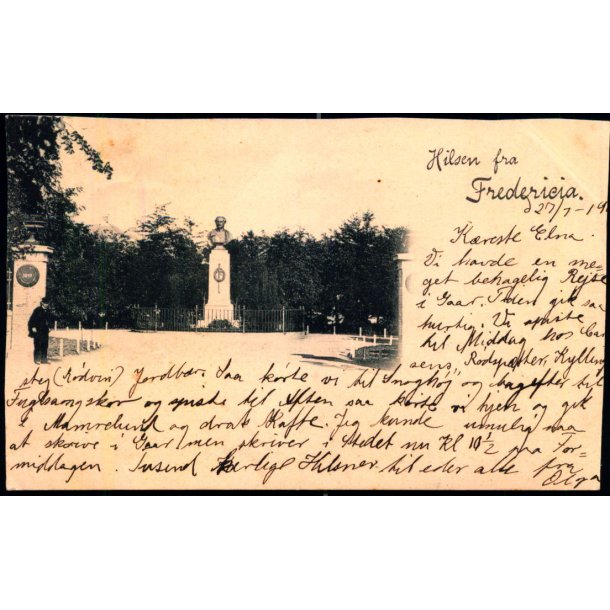 Hilsen fra
Fredericia.
d 27/7-19
Kæreste Elna.
Vi havde en me-
get behagelig Rejse
i Gaar. Tiden gik saa
hurtig. Vi spiste
til Middag hos Car
sens, Rødspætter, Kylling
steg (Rødvin) Jordbær. Saa kørte vi til Snoghøj og bagefter til
og spiste til Aften saa kørte vi hjem og gik
i og drak Kaffe. Jeg kunde umulig naa
at skrive i Gaar men skriver i Stedet nu Kl 10 1/2 paa For-
middagen. Tusind kærlige Hilsner til eder alle fra
Olga